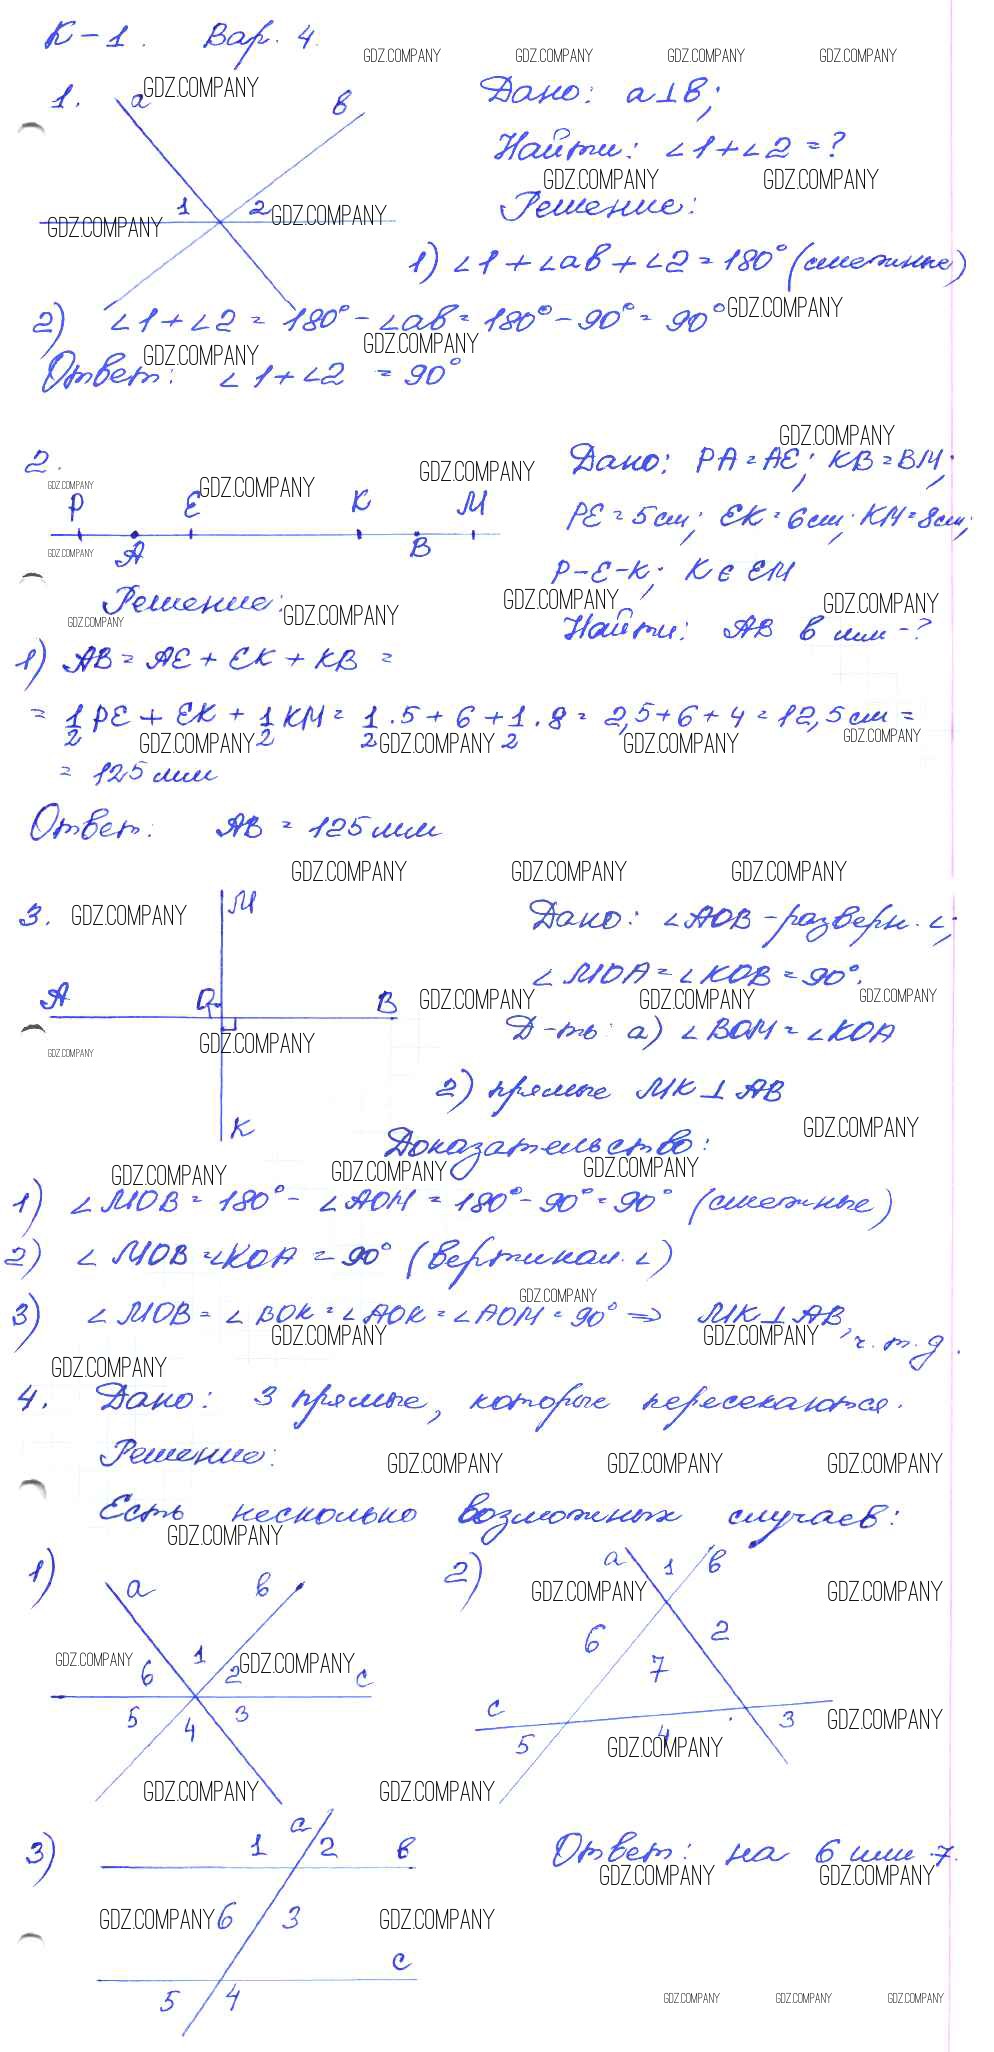 К-1. Вар. 4.
GDZ.COMPANY GDZ.COMPANY GDZ.COMPANY GDZ.COMPANY
GDZ.COMPANY
1. a b Дано: a⊥b;
Найти: ∠1+∠2=?
GDZ.COMPANY GDZ.COMPANY
1 2 Решение:
GDZ.COMPANY GDZ.COMPANY
1) ∠1+∠ab+∠2=180° (смежные)
GDZ.COMPANY
2) ∠1+∠2=180°-∠ab=180°-90°=90°
GDZ.COMPANY GDZ.COMPANY
Ответ: ∠1+∠2 =90°
GDZ.COMPANY
2. Дано: PA=AE; KB=BM;
GDZ.COMPANY GDZ.COMPANY GDZ.COMPANY
P E K M
PE=5см; EK=6см; KM=8см;
A B
GDZ.COMPANY
P-E-K; K∈EM
Решение:
GDZ.COMPANY GDZ.COMPANY GDZ.COMPANY GDZ.COMPANY
Найти: AB в мм-?
1) AB=AE+EK+KB =
= 1/2 PE+EK+1/2 KM= 1/2·5+6+1/2·8=2,5+6+4=12,5см=
GDZ.COMPANY GDZ.COMPANY GDZ.COMPANY GDZ.COMPANY
= 125мм
Ответ: AB=125мм
GDZ.COMPANY GDZ.COMPANY GDZ.COMPANY
3. M Дано: ∠AOB-разверн.∠;
GDZ.COMPANY
∠MOA=∠KOB=90°.
A O B
GDZ.COMPANY GDZ.COMPANY GDZ.COMPANY
Д-ть: а) ∠BOM=∠KOA
GDZ.COMPANY GDZ.COMPANY
2) прямые MK⊥AB
K
GDZ.COMPANY
Доказательство:
GDZ.COMPANY GDZ.COMPANY GDZ.COMPANY
1) ∠MOB=180°-∠AOM=180°-90°=90° (смежные)
2) ∠MOB=∠KOA=90° (вертикал.∠)
GDZ.COMPANY
3) ∠MOB=∠BOK=∠AOK=∠AOM=90° ⇒ MK⊥AB, ч.т.д.
GDZ.COMPANY GDZ.COMPANY
GDZ.COMPANY
4. Дано: 3 прямые, которые пересекаются.
Решение:
GDZ.COMPANY GDZ.COMPANY GDZ.COMPANY
Есть несколько возможных случаев:
GDZ.COMPANY
1) a b
6 1 2 c
5 4 3
GDZ.COMPANY GDZ.COMPANY
2) a 1 b
GDZ.COMPANY GDZ.COMPANY
6 7 2
c
5 4 3
GDZ.COMPANY GDZ.COMPANY
GDZ.COMPANY GDZ.COMPANY
3) 1 a 2 b
6 3
c
5 4
GDZ.COMPANY GDZ.COMPANY
Ответ: на 6 или 7.
GDZ.COMPANY GDZ.COMPANY
GDZ.COMPANY GDZ.COMPANY GDZ.COMPANY